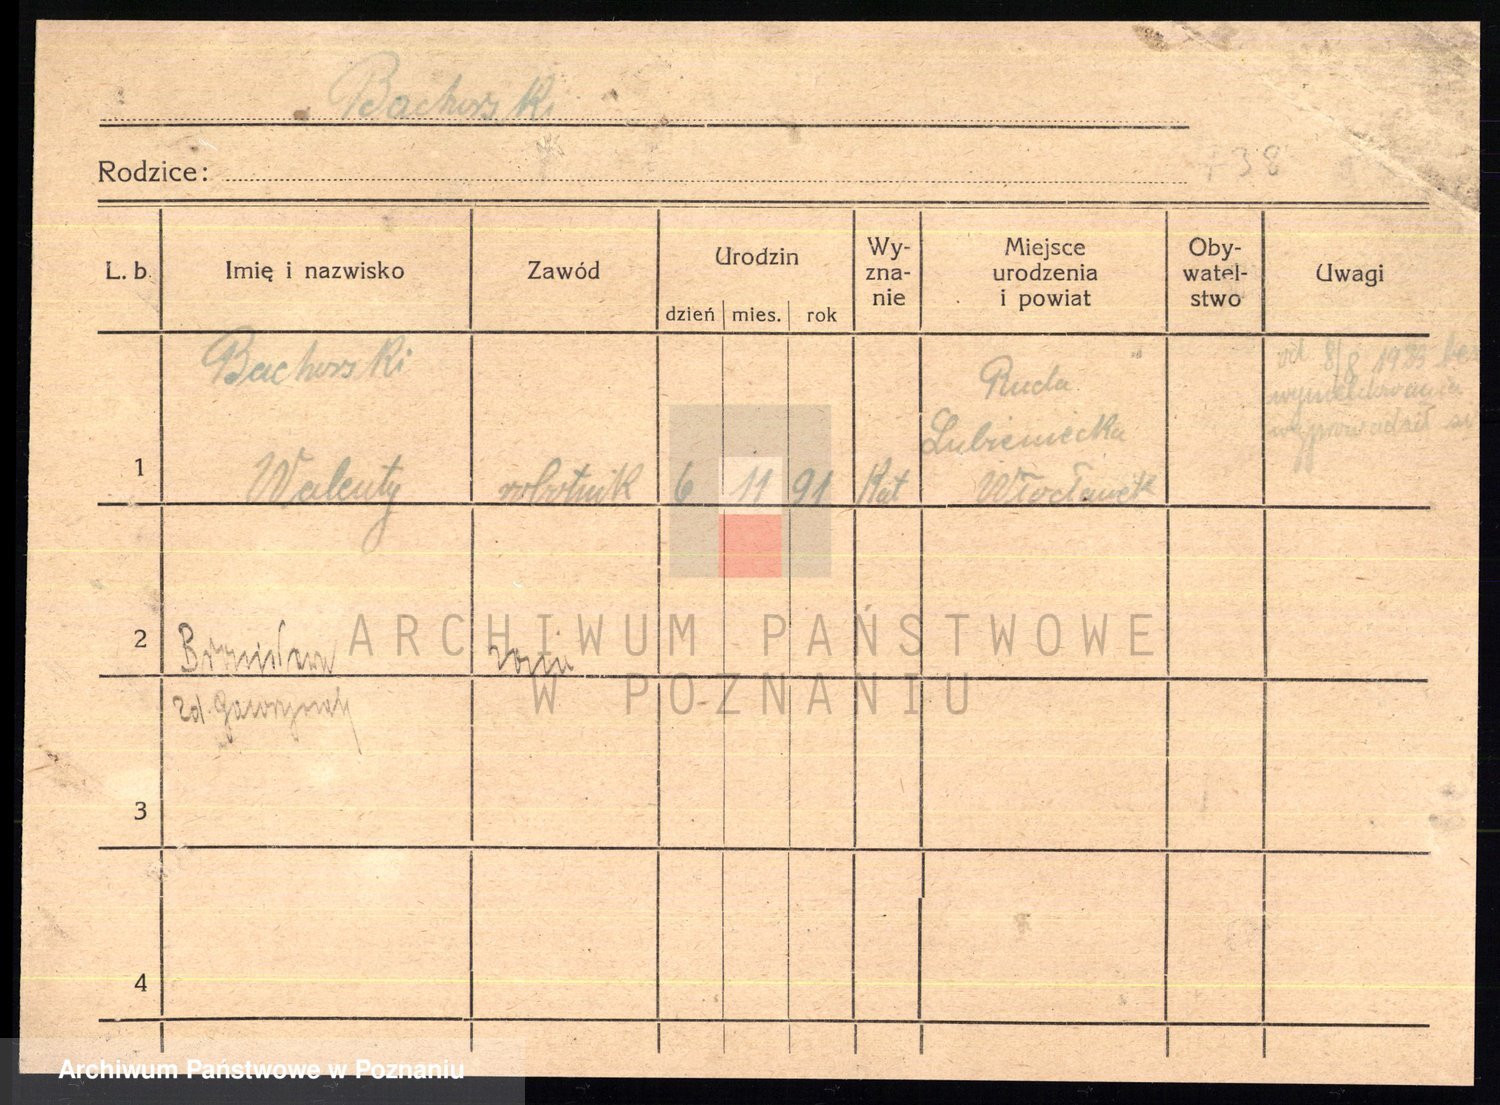 Bachorski
Rodzice:
+ 38
L. b.
Imię i nazwisko
Zawód
Urodzin
dzień mies. rok
Wy-
zna-
nie
Miejsce
urodzenia
i powiat
Oby-
watel-
stwo
Uwagi
1
Bachorski
Walenty
robotnik
6 11 91
Kat
Ruda
Lubieniecka
Włocławek
od 8/8 1933 bez
wymeldowania
wyprowadził
2
Bronisława
zd.
3
4
ARCHIWUM PAŃSTWOWE
W POZNANIU
Archiwum Państwowe w Poznaniu